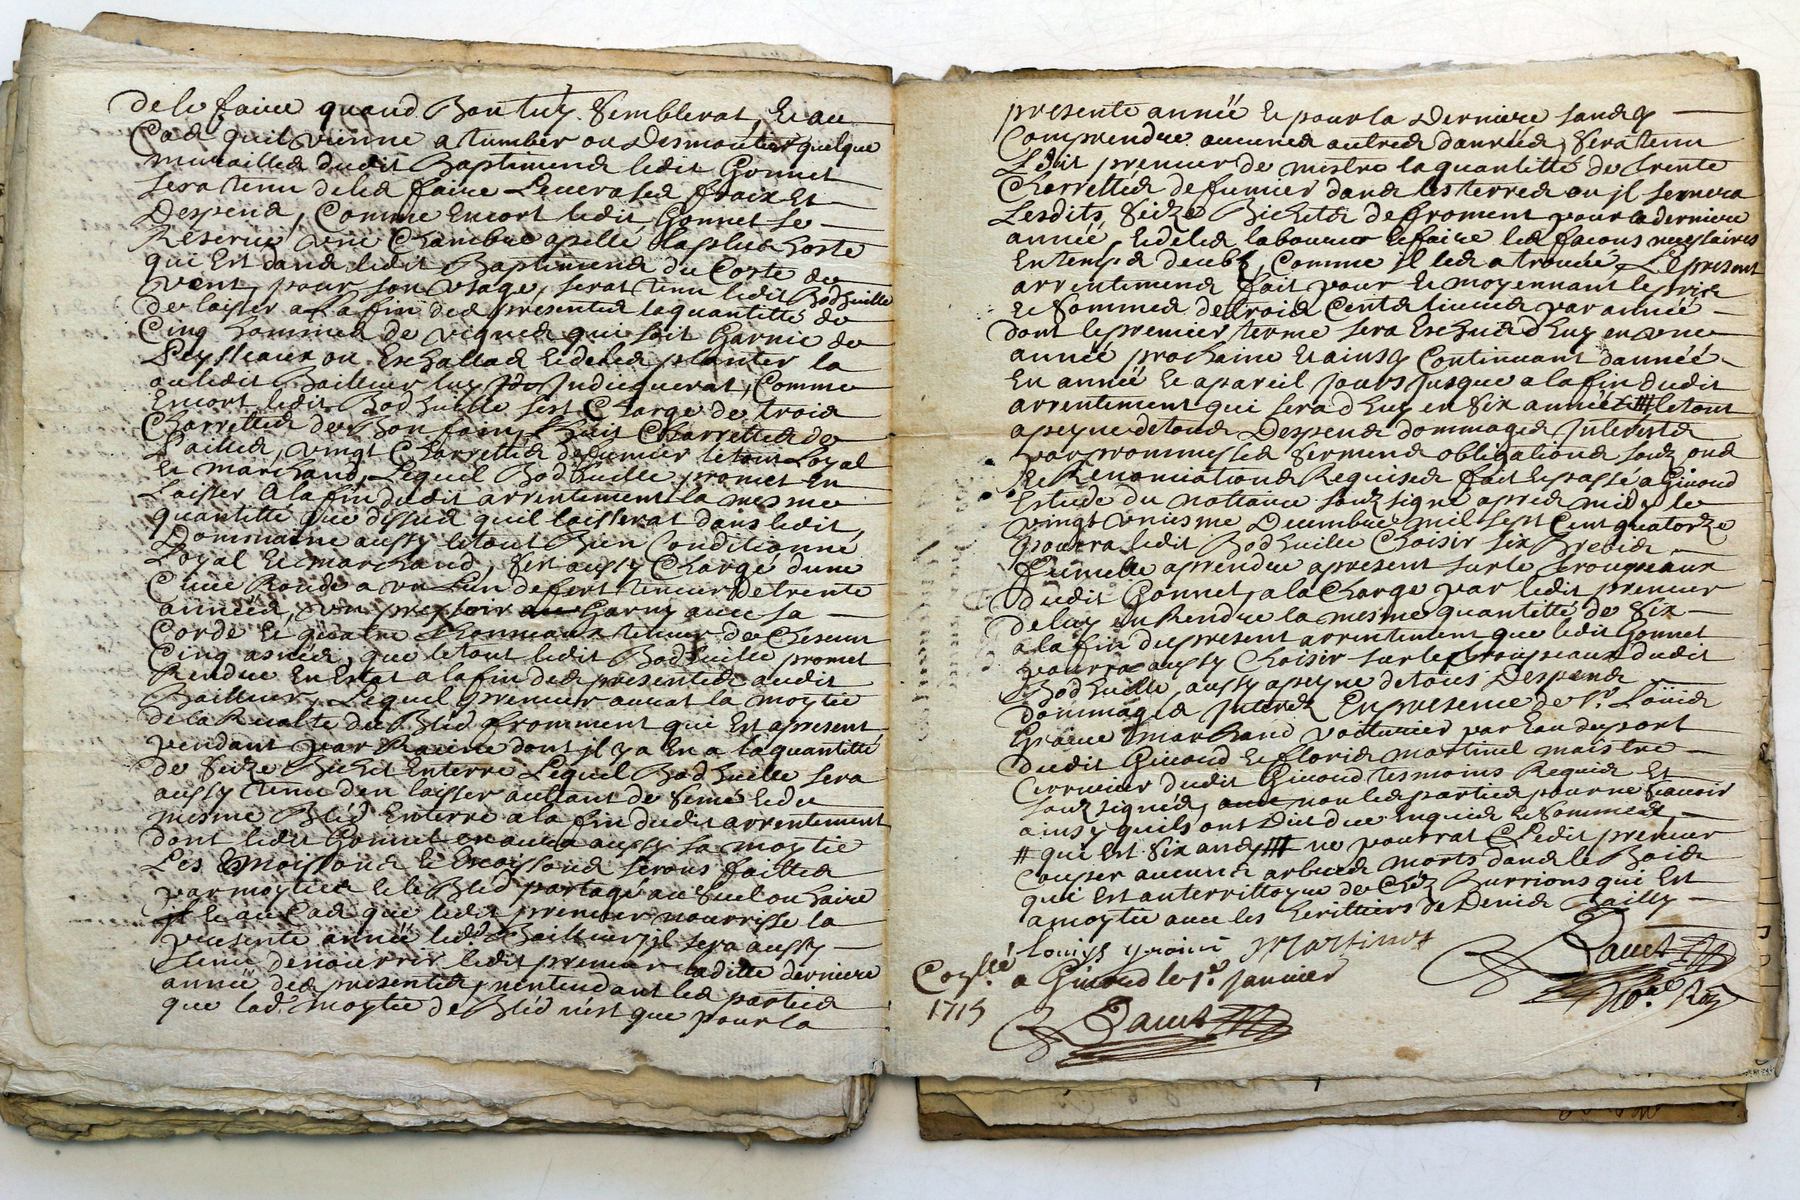 de le faire quand Bon luy Semblerat, Et au
Cas quil vienne a tumber ou Desmonter quelque
murailles dudit Baptimens ledit Gonnet
sera tenu de les faire a ses fraix Et
Despens, Comme Encort ledit Gonnet Se
Reserve une Chambre apellé la plus hoste
qui Est dans ledit Baptimens du Costé du
vent, pour son Usage, serat tenu ledit
de laisser a la fin des presentes la quantitté de
Cinq hommes de vignes qui soit Garnie de
ou Eschallas Et de les planter la
ou ledit Bailleur luy Indiquerat, Comme
Encort ledit sest Charge de trois
Charrettes de Bon foin, huit Charrettes de
Pailles, vingt Charrettes de fumier le tout Loyal
Et marchand, Lequel promet En
Laisser a la fin dudit arrentement la mesme
quantitté que dissus quil laisserat dans ledit
Dommaine aussy le tout Bien Conditionné
Loyal Et marchand, Sest aussy Charge dune
Cuve Ronde a un fert teneur de trente
années, un pressoir Garny avec sa
Corde Et quatre thonneaux teneur de Chescun
Cinq asnées, que le tout ledit promet
Rendre En Estat a la fin des presentes audit
Bailleur, Lequel preneur aurat la moytié
de la Recolte du Bled froment que Est apresent
pendant par Racine dont il y a En a la quantitté
de Seize Bichet En terre Lequel sera
aussy tenu den laisser auttant de Semé Et de
mesme Bléd En terre a la fin dudit arrentement
dont ledit Gonnet en aura aussy sa moytié
Les Moissons Et serons faittes
par moytiés Et le Bléd partagé au Seul ou haire
Et au Cas que ledit preneur nourrisse la
presente année ledt Bailleur, il sera aussy
tenu de nourrir ledit preneur laditte derniere
année des presentes, nentendant les parties
que lad. moytié de Bléd n'est que pour la
presente année Et pour la Derniere sans y
Comprendre aucunes autres danrées, Sera tenu
Ledit preneur de mestre la quantitté de trente
Charrettes de fumier dans les terres ou jl semera
Lesdits Seize Bichets de froment pour la derniere
année, Et de les labourer Et faire les facons necessaires
En temps deubt, Comme jl les a trouvée, Le present
arrentemens fait pour Et moyennant le prix
Et Sommes de trois Cents livres par année
dont le premier terme sera Eschus dhuy en une
année prochaine Et ainsy Continuant dannée
En année Et a pareil Jours Jusque a la fin dudit
arrentement qui sera dhuy en Six années # le tout
a peyne de tous Despens dommages Interests
par prommesses Sermens obligations Soubs
Et Renonciations Requises fait Et passé a Givord
Estude du nottaire soubsigné apres midy le
vingt uniesme Decembre mil sept Cent quatorze
pourra ledit Choisir six Brebis
fumelle a prendre apresent sur le trouppeaux
dudit Gonnet, a la Charge par ledit preneur
de luy en Rendre la mesme quantitté de Six
a la fin du present arrentement que ledit Gonnet
pourra aussy Choisir sur le trouppeaux dudit
aussy a peyne de tous Despens
dommages Interets En presence de Sr. Loüis
marchand voiturier par Eau du port
dudit Givord Et floris martinet maistre
Serrurier dudit Givord tesmoins Requis Et
soubsignés, non les parties pour ne Scavoir
ainsy quils ont Dit de ce Enquis Et Sommés
# qui Est Six ans # ne pourrat Ledit preneur
Couper aucuns arbres morts dans le Bois
qui Est au territtoyre de Chez Burrions qui Est
a moytié avec les heritiers de Denis Bailly
Louijs martinet
a Givord le 1er. Janvier
1715